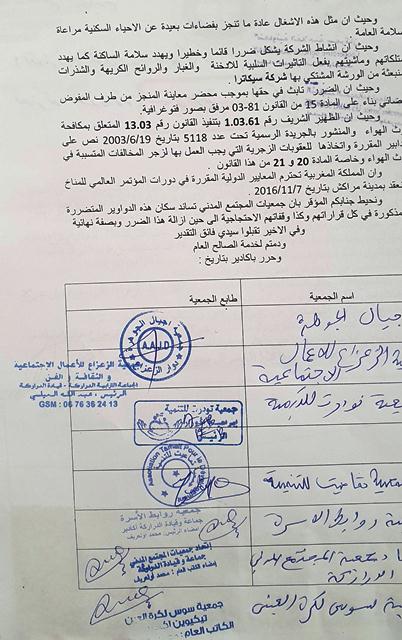 وحيث ان مثل هذه الاشغال عادة ما تنجز بفضاءات بعيدة عن الاحياء السكنية مراعاة
سلامة العامة .
وحيث ان انشاط الشركة يشكل ضررا قائما وخطيرا ويهدد سلامة الساكنة كما يهدد
تلكاتهم وماشيتهم بفعل التاثيرات السلبية للادخنة والغبار والروائح الكريهة والشذرات
نبعثة من الورشة المشتكي بها شركة سيكاترا .
وحيث ان الضرر ثابت في حقها بموجب محضر معاينة المنجز من طرف المفوض
ضائي بناء على المادة 15 من القانون 81-03 مرفق بصور فتوغرافية.
وحيث ان الظهير الشريف رقم 1.03.61 بتنفيذ القانون رقم 13.03 المتعلق بمكافحة
وث الهواء والمنشور بالجريدة الرسمية تحت عدد 5118 بتاريخ 2003/6/19 نص على
دابير المقررة واتخاذها للعقوبات الزجرية التي يجب العمل بها لزجر المخالفات المتسببة في
وث الهواء وخاصة المادة 20 و 21 من هذا القانون
وان المملكة المغربية تحترم المعايير الدولية المقررة في دورات المؤتمر العالمي للمناخ
نعقد بمدينة مراكش بتاريخ 2016/11/7.
ونحيط جنابكم المؤقر بان جمعيات المجتمع المدني تساند سكان هذه الدواوير المتضررة
مذكورة في كل قراراتهم وكذا وقفاتهم الاحتجاجية الى حين ازالة هذا الضرر وبصفة نهائية
وفي الاخير تقبلوا سيدي فائق التقدير
ودمتم لخدمة الصالح العام
وحرر باكادير بتاريخ :
اسم الجمعية
طابع الجمعية
جيال الجوطية
جمعية اجيال الجوطية
A.A.J.D
دوار الزعزاع
ية الزعزاع للاعمال
الاجتماعية
ية الزعزاع للأعمال الاجتماعية
و الثقافة و الفن
الجماعة الترابية الدراركة - قيادة الدراركة
الرئيس : عبد الله
GSM : 06 76 36 24 13
عية تودرت للتنمية
جمعية تودرت للتنمية
الرئيس
معية تماعيت للتنمية
Association Tamait Pour le
ية روابط الاسرة
جمعية روابط الأسرة
جماعة وقيادة الدراركة أكادير
إمضاء الرئيس: محمد اولعريف
جمعية المجتمع المدني
الدراركة
إتحاد جمعيات المجتمع المدني
جماعة و قيادة الدراركة
إمضاء الكاتب العام : محمد اولعريف
ية سوس لكرة العين
جمعية سوس لكرة العين
تيكيوين
الكاتب العام :